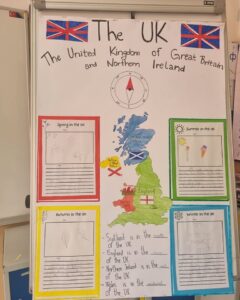 The UK
The United Kingdom of Great Britain
and Northern Ireland
Spring in the UK
Summer in the UK
Autumn in the UK
Winter in the UK
- Scotland is in the
of the UK
- England is in the
of the UK
- Northern Ireland is in the
of the UK
- Wales is in the
of the UK